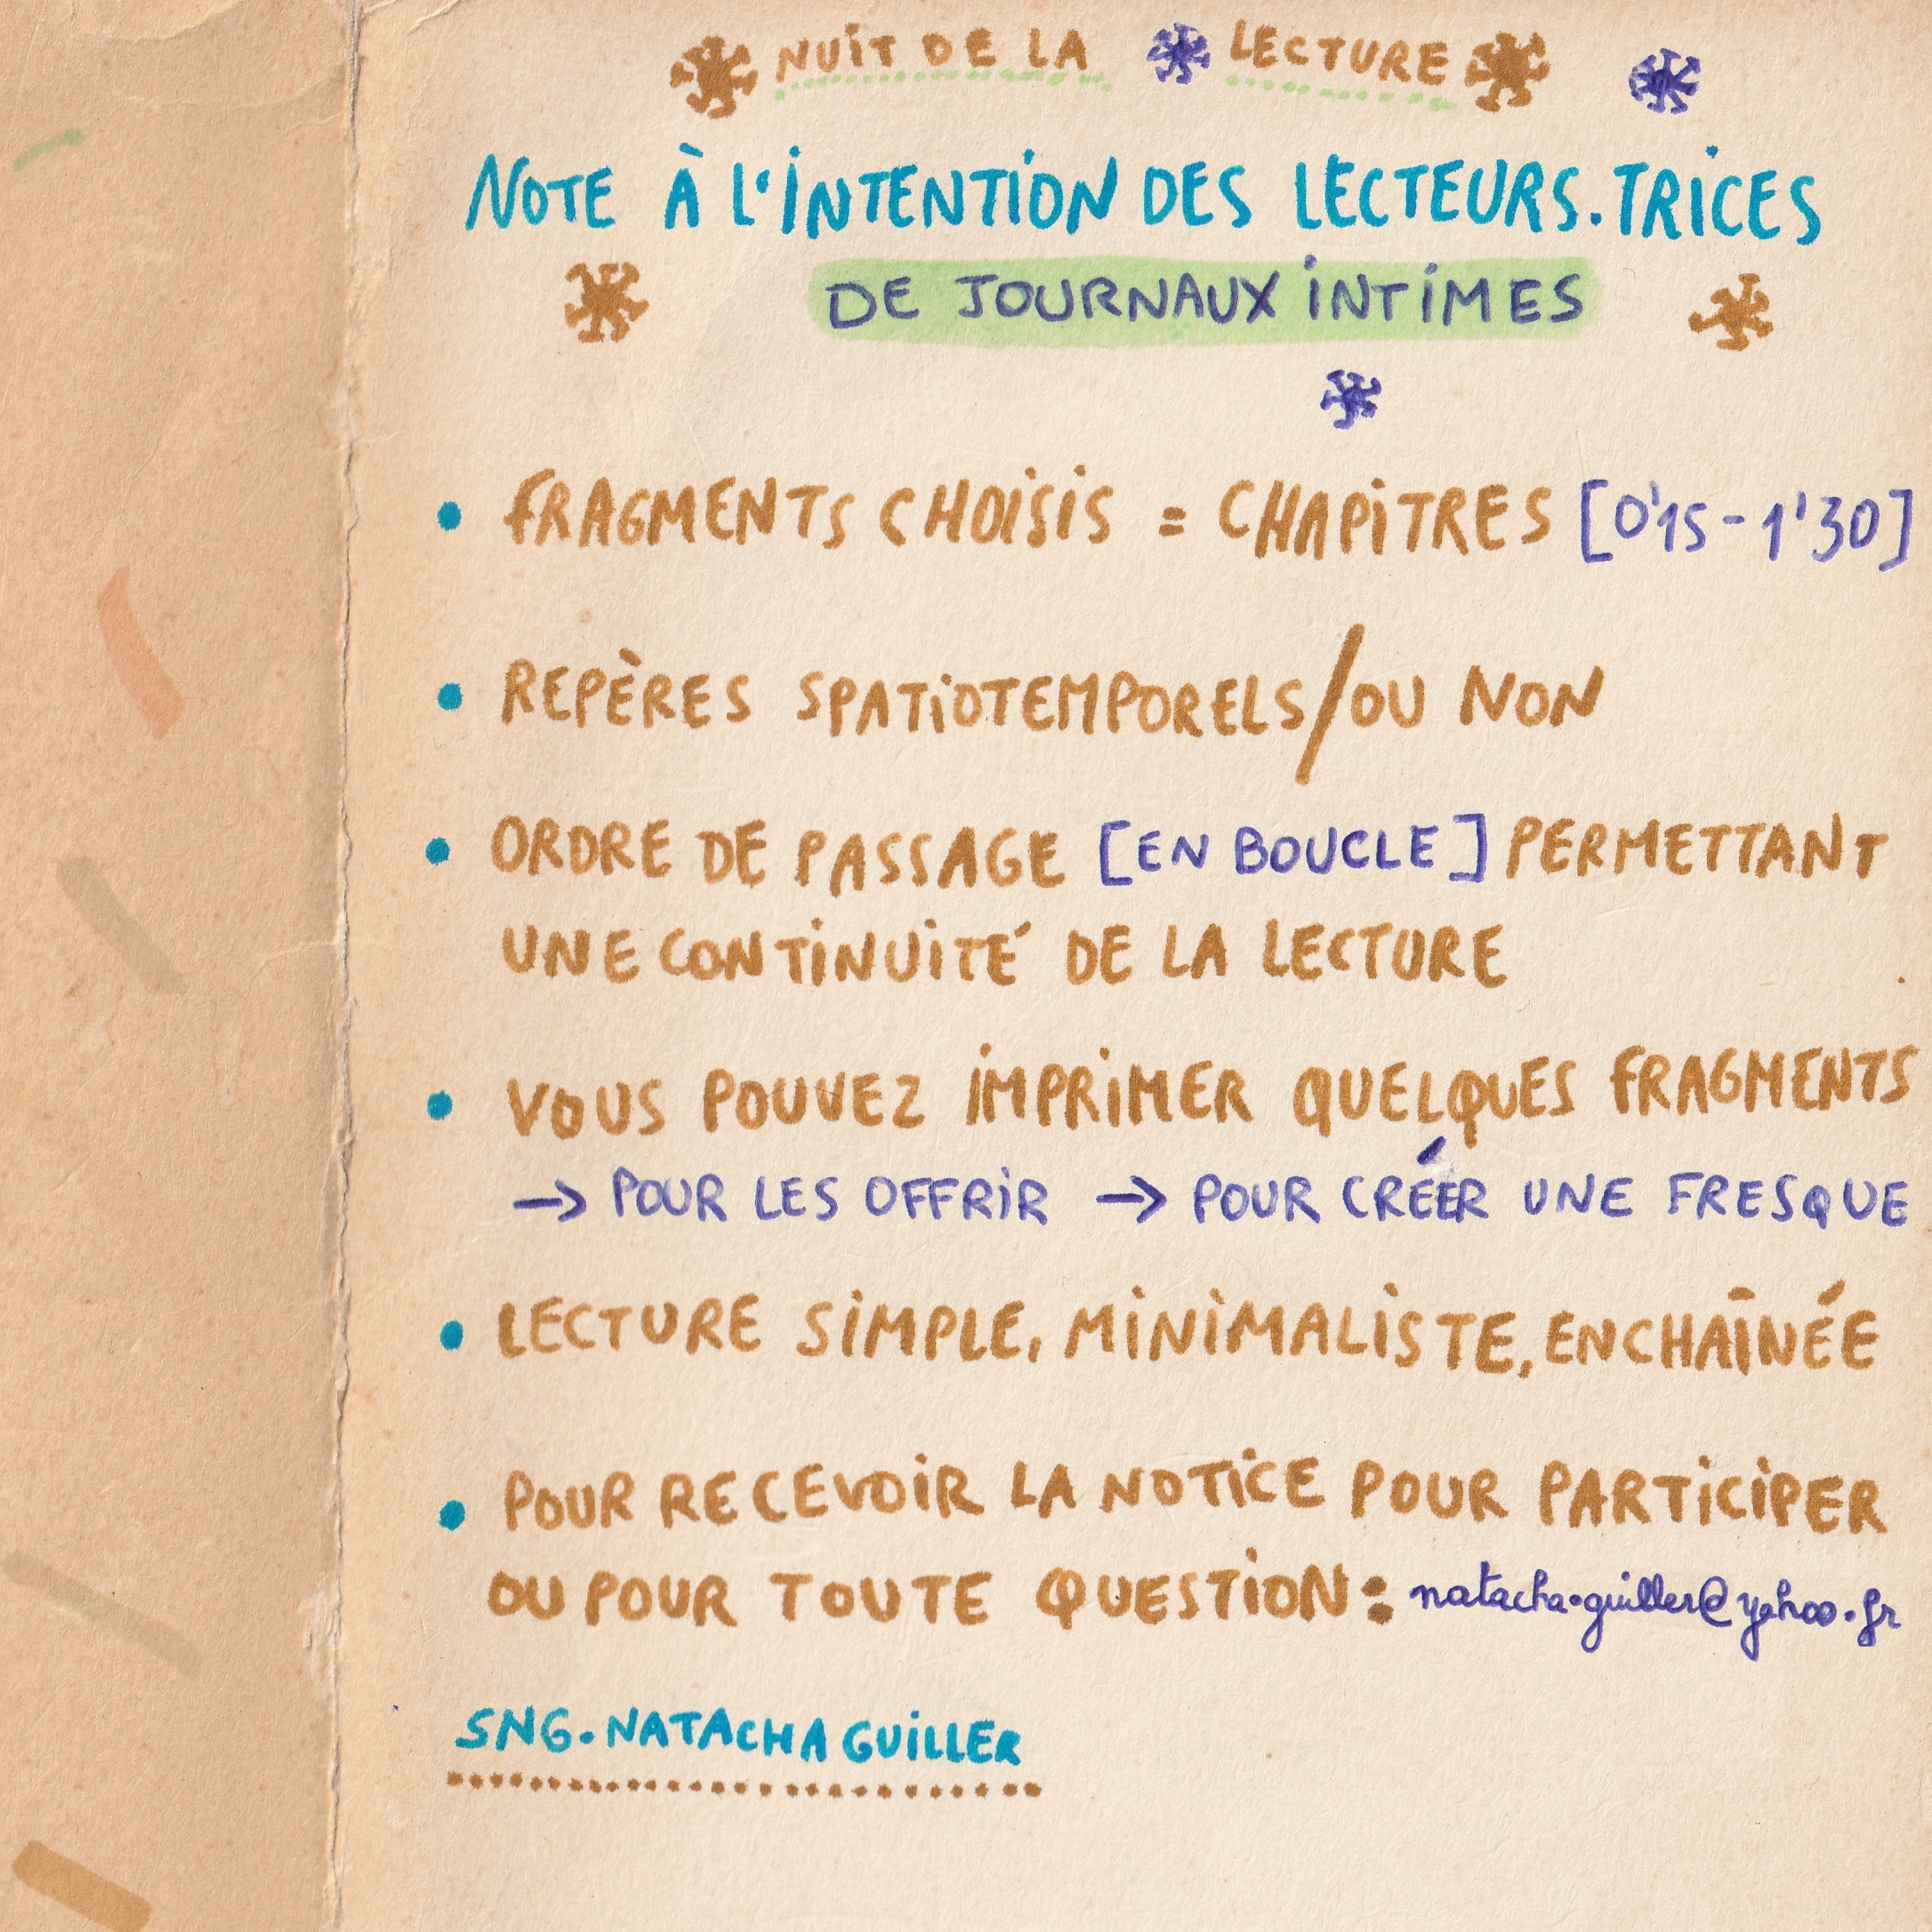 NUIT DE LA LECTURE
NOTE À L'INTENTION DES LECTEURS.TRICES
DE JOURNAUX INTIMES
• FRAGMENTS CHOISIS = CHAPITRES [0'15-1'30]
• REPÈRES SPATIOTEMPORELS/OU NON
• ORDRE DE PASSAGE [EN BOUCLE] PERMETTANT
UNE CONTINUITÉ DE LA LECTURE
• VOUS POUVEZ IMPRIMER QUELQUES FRAGMENTS
→ POUR LES OFFRIR → POUR CRÉER UNE FRESQUE
• LECTURE SIMPLE, MINIMALISTE, ENCHAÎNÉE
• POUR RECEVOIR LA NOTICE POUR PARTICIPER
OU POUR TOUTE QUESTION: natacha.guiller@yahoo.fr
SNG.NATACHA GUILLER